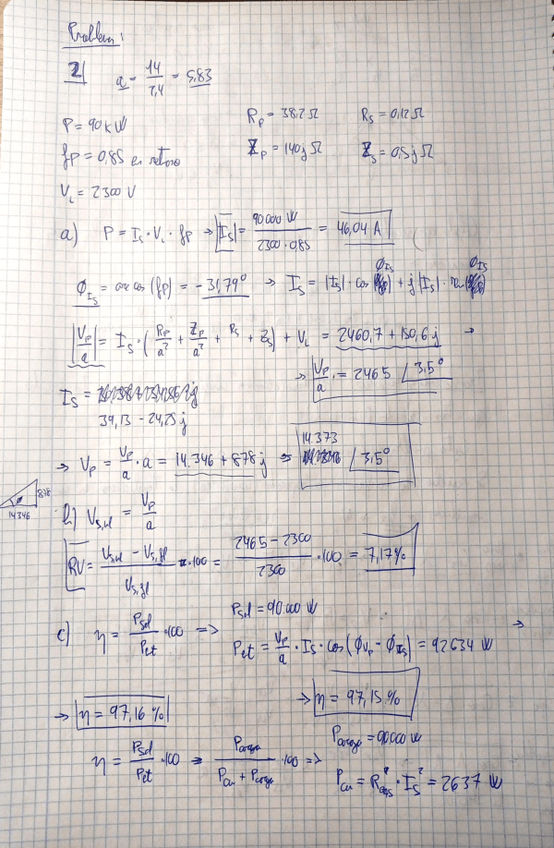 Problema:
2 a = 14/2,4 = 5,83
P = 90kW
Rp = 38.2 Ω Rs = 0,12 Ω
fp = 0,85 en retraso
Zp = 140j Ω Zs = 0.5j Ω
VL = 2300 V
a) P = Is · VL · fp → |Is| = 90000 W / 2300·0,85 = 46,04 A
ØIs = arc cos (fp) = -31,79° → Is = |Is| · cos (ØIs) + j |Is| · sen (ØIs)
|Vp/a| = Is · (Rp/a² + Zp/a² + Rs + Zs) + VL = 2460,7 + 150,6 j →
→ Vp/a = 2465 ∠3.5°
Is =
39,13 - 24,25 j
→ Vp = Vp/a · a = 14.346 + 878 j ⇒ 14.373 ∠3.5°
878
14346
b) Vs,nl = Vp/a
RV = Vs,nl - Vs,fl / Vs,fl · 100 = 2465 - 2300 / 2300 · 100 = 7,17%
c) η = Psal/Pet · 100 => Psal = 90.000 W
Pet = Vp/a · Is · cos (ØVp - ØIs) = 92634 W →
→ η = 97,15 %
→ η = 97,16 %
η = Psal/Pet · 100 → Pcarga / Pcu + Pcarga · 100 =>
Pcarga = 90000 W
Pcu = · Is² = 2637 W